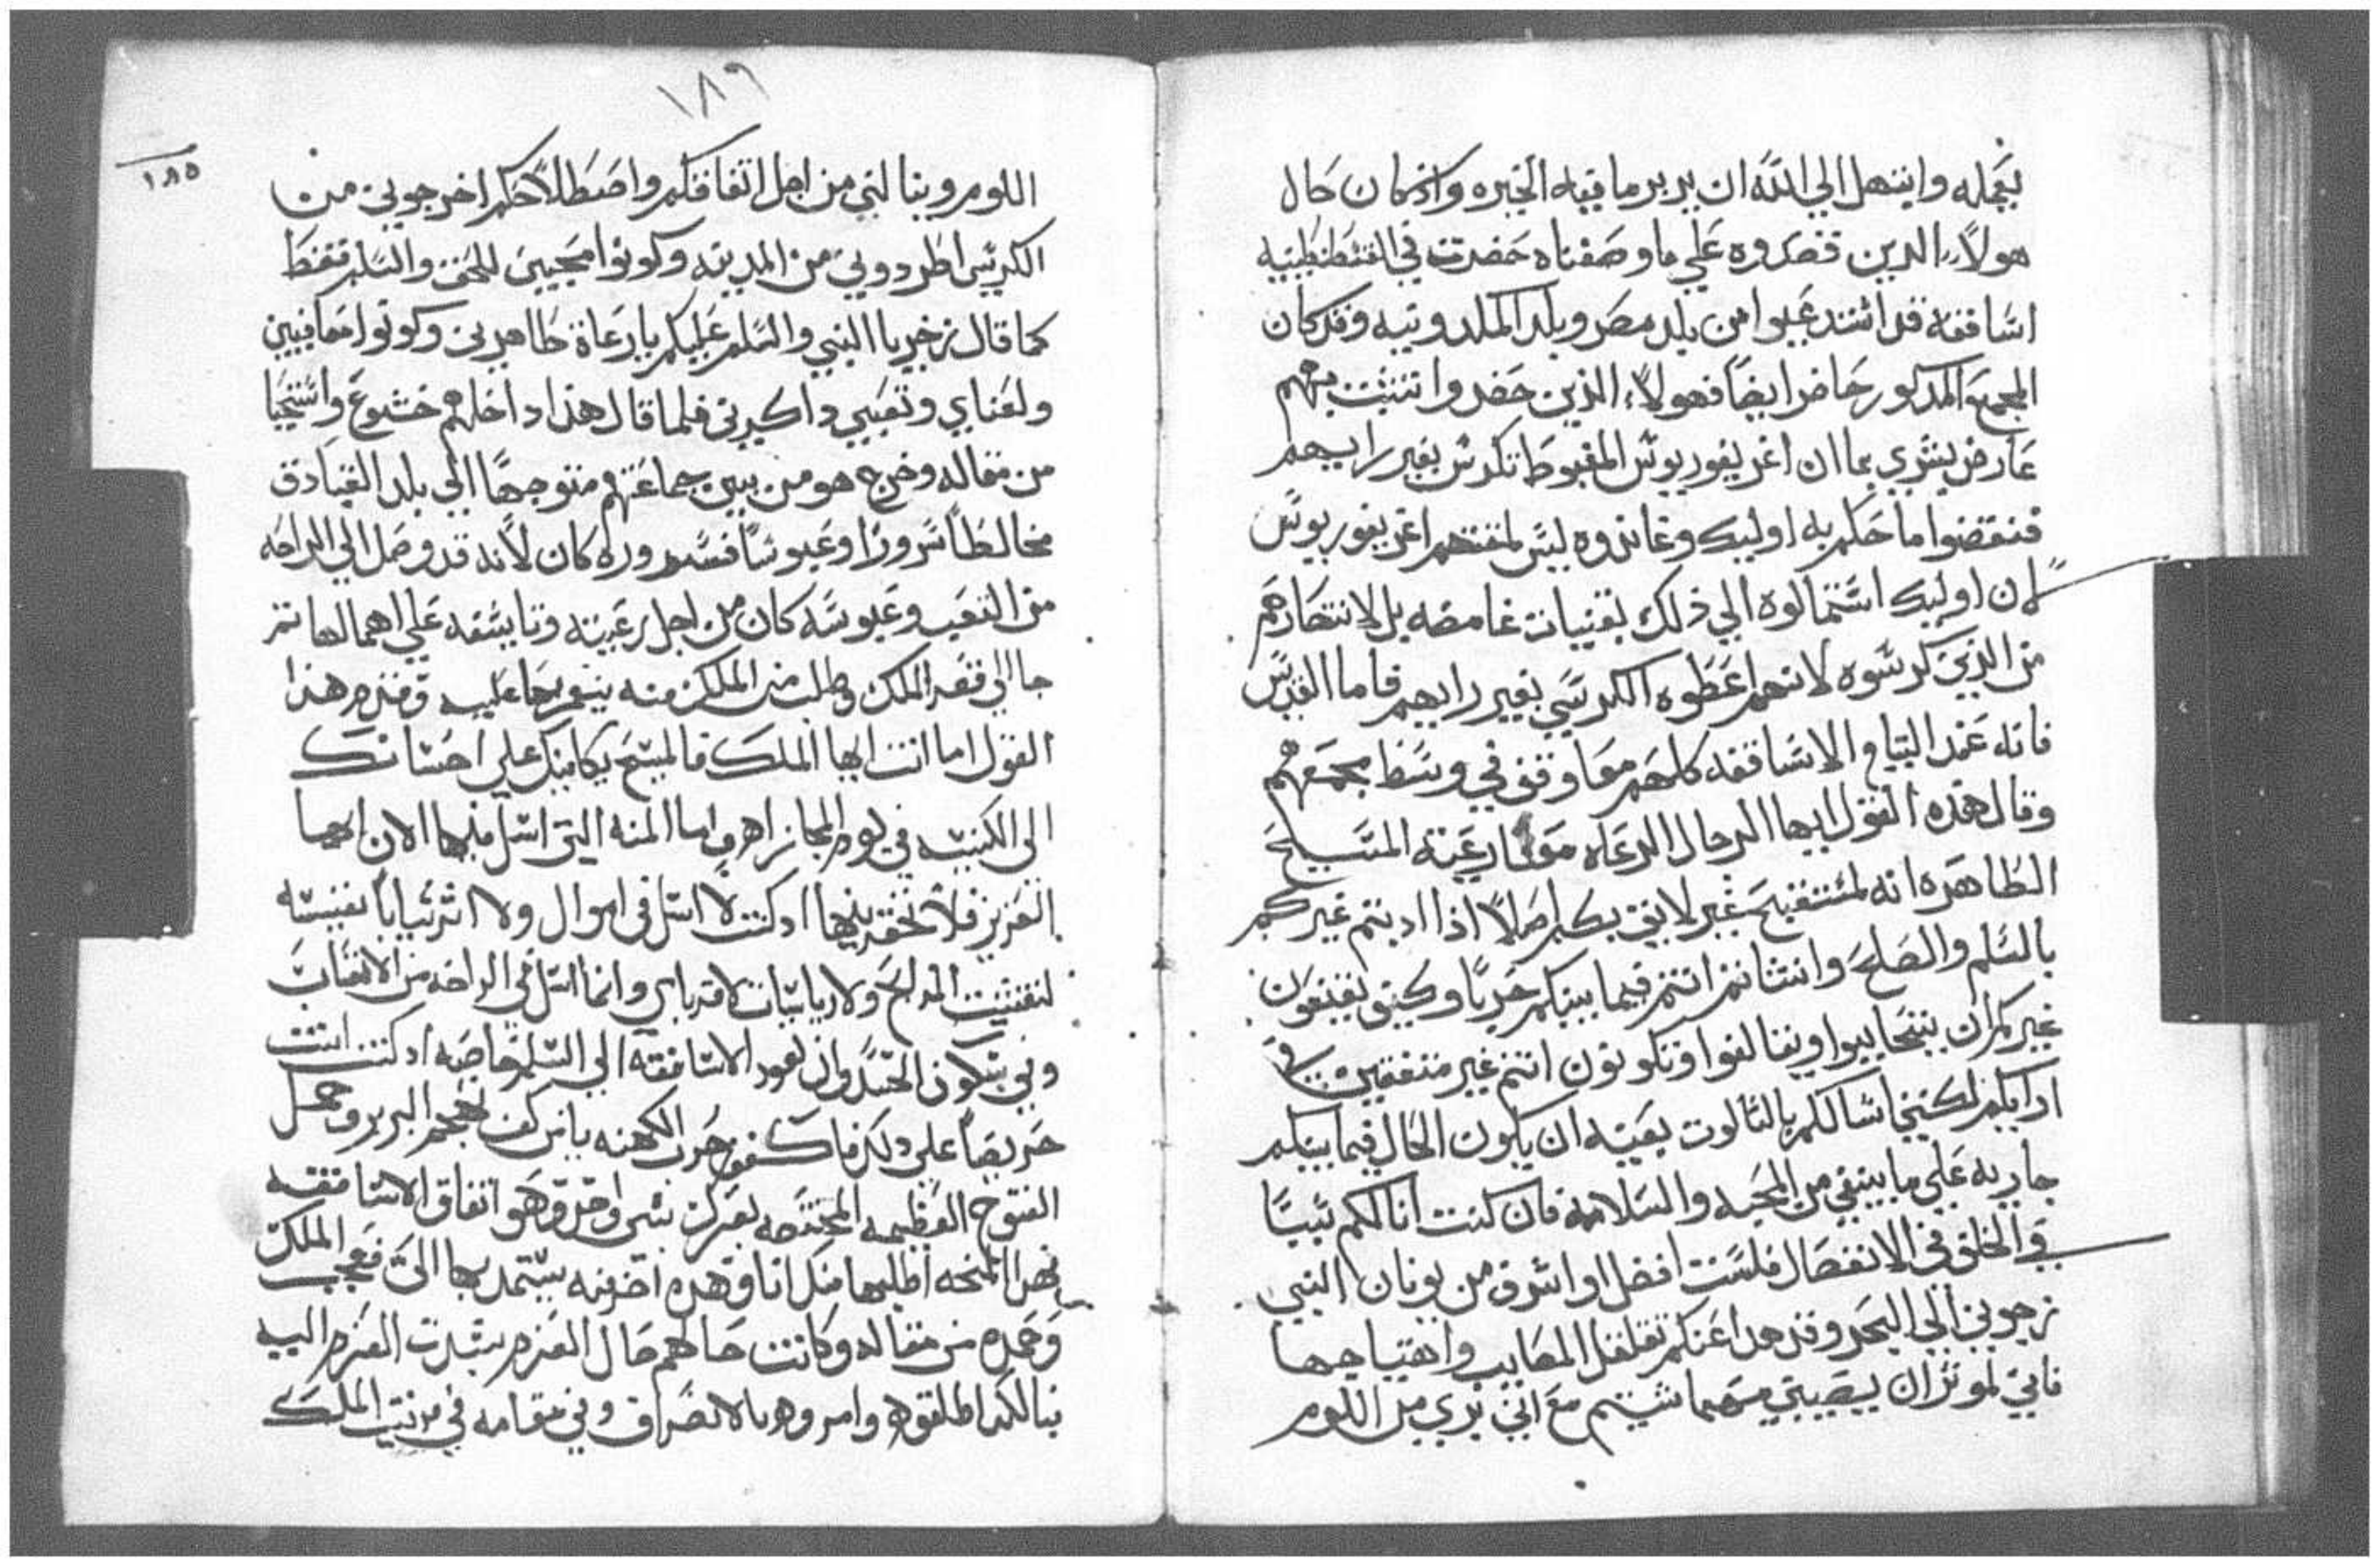 يعمله وابتهل الي الله ان يدبر ما فيه الخيره واذ كان حال
هولاء الدين تصدروه علي ما وصفناه حضرت في القسطنطينيه
اساقفه قد استدعيوا من بلد مصر وبلد الملدونيه وقد كان
المجمع المدكور حاضر ايضاً فهولاء الذين حضروا انتشت بهم
عارض بشري بما ان اغريغوريوس المغبوط تكرس بغير رايهم
فنقضوا ما حكم به اوليك وعاندوه ليس لمقتهم اغريغوريوس
لان اوليك استمالوه الي ذلك بقنيات غامضه بل لانتحادهم
من الذين كرسوه لانهم اعطوه الكرسي بغير رايهم فاما القديس
فانه عند التيام الاساقفه كلهم معا وقف في وسط مجمعهم
وقال هذه القول ايها الرجال الرعاه معا رعية المسيح
الطاهره انه لمستقبح غير لايق بكم اصلاً اذا ادبتم غيركم
بالسلم والصلح وانتشاتم انتم فيما بينكم حرباً وكيف تقنعون
غيركم ان يتحابوا ويتالفوا وتكونون انتم غير متفقين في
ارايكم لكنني اسالكم بالتالوت بعينه ان يكون الحال فيما بينكم
جاريه علي ما ينبغي من المحبه والسلامه فان كنت انا لكم سبباً
في الخلق في الانفصال فلست افضل او اشرف من يونان النبي
زجوني الي البحر وقد هدا عنكم تقلقل المصايب واهتياجها
فاني لموثر ان يصيبني مهما شيتم مع اني بري من اللوم
١٨٦
١٨٥
اللوم وينالني من اجل اتفاقكم واصطلاحكم اخرجوني من
الكرسي اطردوني من المدينه وكونوا محبين للحق والسلم فقط
كما قال زخريا النبي والسلم عليكم يا رعاة طاهرين وكونوا معافيين
ولعناي وتعبي داكرين فلما قال هذا داخلهم خشوع واستحيا
من مقاله وخرج هو من بين جماعتهم متوجهاً الي بلد القبادق
مخالطاً سروراً وعبوساً فسروره كان لانه قد وصل الي الراحه
من التعب وعبوسه كان من اجل رعيته وتايسفه علي اهمالها تم
جا الي قصر الملك وطلب من الملك منه ينعم بها عليه وقدم هذا
القول اما انت ايها الملك فالمسيح يكافيك علي احسانك
الي الكنيسه في يوم المجازاه واما المنه التي اسل فيها الان ايها
العزيز فلا تخفر بنيها ادكنت لا اسل في اموال ولا اثر ثياباً نفيسه
لتغشيت المدابح ولا رياسات لاقرباي وانما اسل في الراحه من الاتعاب
وفي سكون الحسد وان تعود الاساقفه الي السلم خاصه ادكنت انت
حريصاً علي دلك فاكفف حرب الكهنه يا من كف تهجم البربر وجمل
الفتوح العظيمه المحتشمه بعزك بشي واحد وهو اتفاق الاساقفه
فهدا المنحه اطلبها منك انا وهده اخر منه يستمد بها الي فعجب الملك
وحمده من مقاله وكانت حالهم حال العزم سبرت العزم اليه
فبالكد اطلقوه وامروه بالانصراف وفي مقامه في مرتبة الملك